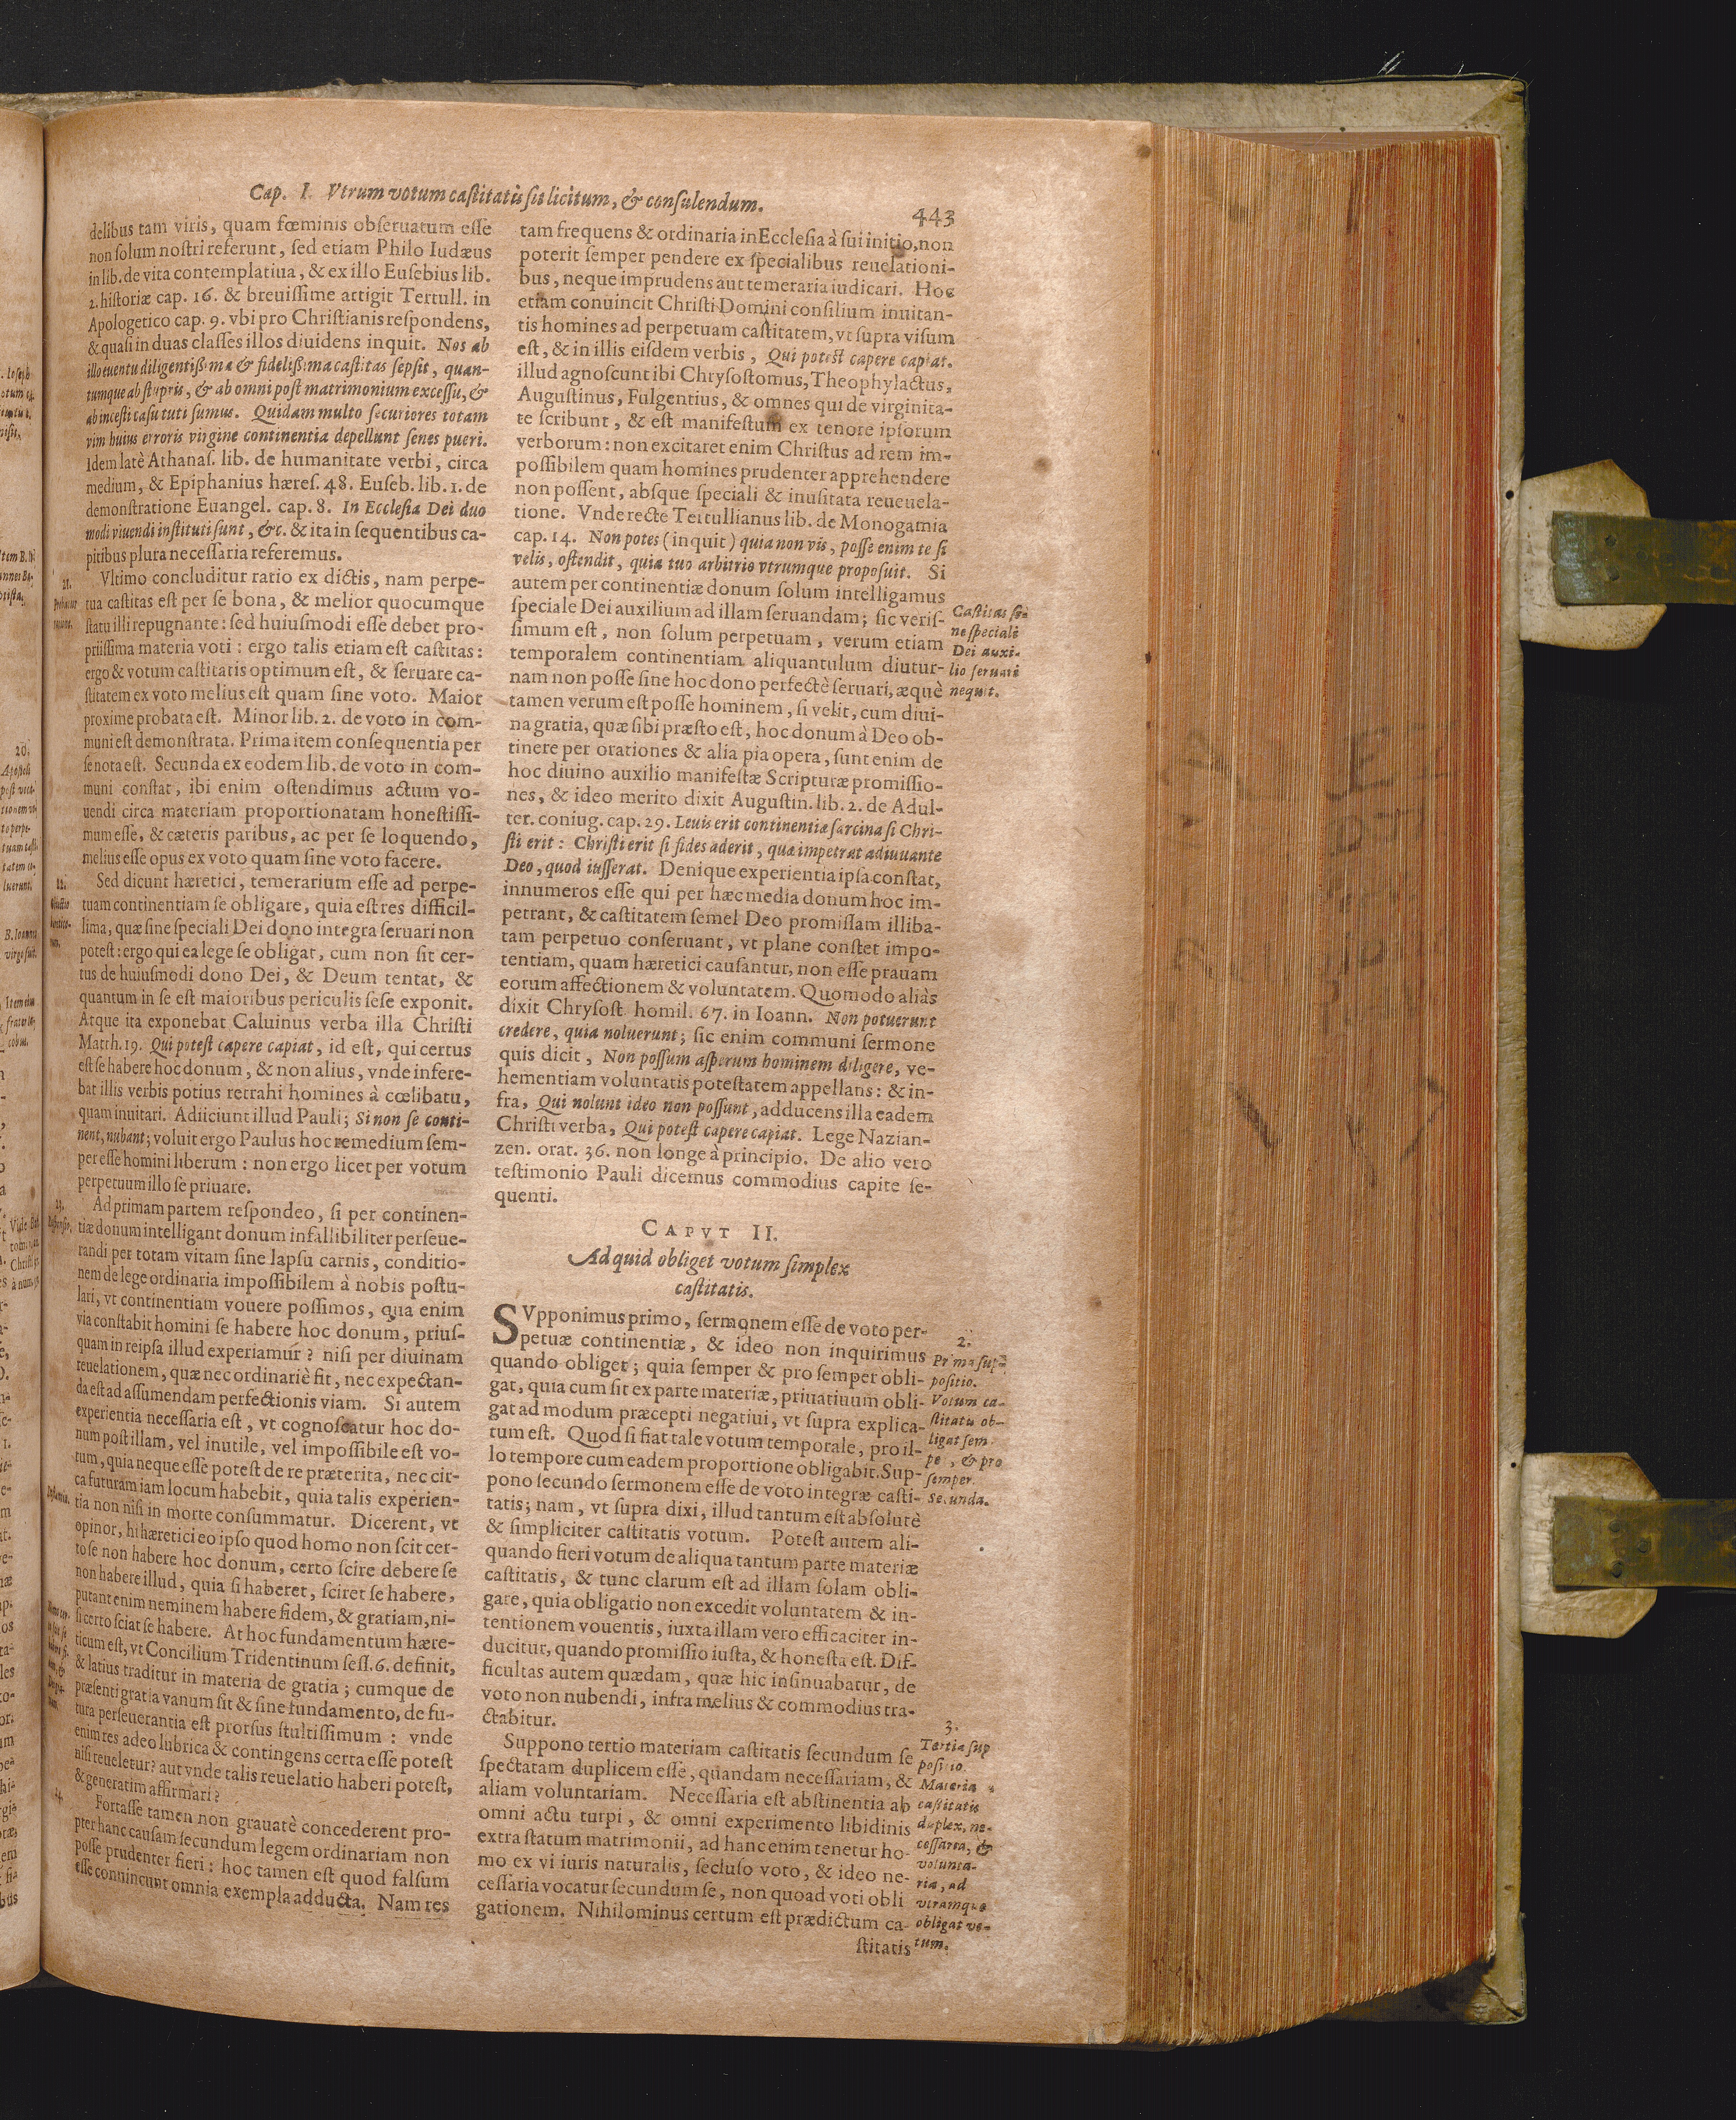 Cap. I. Vtrum votum castitatis sit licitum, & consulendum.
443
delibus tam viris, quam fœminis obseruatum esse
non solum nostri referunt, sed etiam Philo Iudæus
in lib. de vita contemplatiua, & ex illo Eusebius lib.
2. historiæ cap. 16. & breuissime attigit Tertull. in
Apologetico cap. 9. vbi pro Christianis respondens,
& quasi in duas classes illos diuidens inquit. Nos ab
illo euentu diligentißima & fidelißima castitas sepsit, quan-
tumque ab stupris, & ab omni post matrimonium excessu, &
ab incesti casu tuti sumus. Quidam multo securiores totam
vim huius erroris virgine continentia depellunt senes pueri.
Idem latè Athanas. lib. de humanitate verbi, circa
medium, & Epiphanius hæres. 48. Euseb. lib. 1. de
demonstratione Euangel. cap. 8. In Ecclesia Dei duo
modi viuendi instituti sunt, &c. & ita in sequentibus ca-
pitibus plura necessaria referemus.
21.
Vltimo concluditur ratio ex dictis, nam perpe-
tua castitas est per se bona, & melior quocumque
statu illi repugnante: sed huiusmodi esse debet pro-
priissima materia voti: ergo talis etiam est castitas:
ergo & votum castitatis optimum est, & seruare ca-
stitatem ex voto melius est quam sine voto. Maior
proxime probata est. Minor lib. 2. de voto in com-
muni est demonstrata. Prima item consequentia per
se nota est. Secunda ex eodem lib. de voto in com-
muni constat, ibi enim ostendimus actum vo-
uendi circa materiam proportionatam honestissi-
mum esse, & cæteris paribus, ac per se loquendo,
melius esse opus ex voto quam sine voto facere.
22.
Sed dicunt hæretici, temerarium esse ad perpe-
tuam continentiam se obligare, quia est res difficil-
lima, quæ sine speciali Dei dono integra seruari non
potest: ergo qui ea lege se obligat, cum non sit cer-
tus de huiusmodi dono Dei, & Deum tentat, &
quantum in se est maioribus periculis sese exponit.
Atque ita exponebat Caluinus verba illa Christi
Matth. 19. Qui potest capere capiat, id est, qui certus
est se habere hoc donum, & non alius, vnde infere-
bat illis verbis potius retrahi homines à cœlibatu,
quam inuitari. Adiiciunt illud Pauli; Si non se conti-
nent, nubant; voluit ergo Paulus hoc remedium sem-
per esse homini liberum: non ergo licet per votum
perpetuum illo se priuare.
23.
Ad primam partem respondeo, si per continen-
tiæ donum intelligant donum infallibiliter perseue-
randi per totam vitam sine lapsu carnis, conditio-
nem de lege ordinaria impossibilem à nobis postu-
lari, vt continentiam vouere possimos, qua enim
via constabit homini se habere hoc donum, prius-
quam in reipsa illud experiamur? nisi per diuinam
reuelationem, quæ nec ordinariè fit, nec expectan-
da est ad assumendam perfectionis viam. Si autem
experientia necessaria est, vt cognoscatur hoc do-
num post illam, vel inutile, vel impossibile est vo-
tum, quia neque esse potest de re præterita, nec cir-
ca futuram iam locum habebit, quia talis experien-
tia non nisi in morte consummatur. Dicerent, vt
opinor, hi hæretici eo ipso quod homo non scit cer-
to se non habere hoc donum, certo scire debere se
non habere illud, quia si haberet, sciret se habere,
putant enim neminem habere fidem, & gratiam, ni-
si certo sciat se habere. At hoc fundamentum hære-
ticum est, vt Concilium Tridentinum sess. 6. definit,
& latius traditur in materia de gratia; cumque de
præsenti gratia vanum sit & sine fundamento, de fu-
tura perseuerantia est prorsus stultissimum: vnde
enim res adeo lubrica & contingens certa esse potest
nisi reueletur? aut vnde talis reuelatio haberi potest,
& generatim affirmari?
Fortasse tamen non grauatè concederent pro-
pter hanc causam secundum legem ordinariam non
posse prudenter fieri: hoc tamen est quod falsum
esse conuincunt omnia exempla adducta. Nam res
tam frequens & ordinaria in Ecclesia à sui initio, non
poterit semper pendere ex specialibus reuelationi-
bus, neque imprudens aut temeraria iudicari. Hoc
etiam conuincit Christi Domini consilium inuitan-
tis homines ad perpetuam castitatem, vt supra visum
est, & in illis eisdem verbis, Qui potest capere capiat.
illud agnoscunt ibi Chrysostomus, Theophylactus,
Augustinus, Fulgentius, & omnes qui de virginita-
te scribunt, & est manifestum ex tenore ipsorum
verborum: non excitaret enim Christus ad rem im-
possibilem quam homines prudenter apprehendere
non possent, absque speciali & inusitata reueuela-
tione. Vnde recte Tertullianus lib. de Monogamia
cap. 14. Non potes (inquit) quia non vis, posse enim te si
velis, ostendit, quia tuo arbitrio vtrumque proposuit. Si
autem per continentiæ donum solum intelligamus
speciale Dei auxilium ad illam seruandam; sic veris-
simum est, non solum perpetuam, verum etiam
temporalem continentiam aliquantulum diutur-
nam non posse sine hoc dono perfectè seruari, æquè
tamen verum est posse hominem, si velit, cum diui-
na gratia, quæ sibi præsto est, hoc donum à Deo ob-
tinere per orationes & alia pia opera, sunt enim de
hoc diuino auxilio manifestæ Scripturæ promissio-
nes, & ideo merito dixit Augustin. lib. 2. de Adul-
ter. coniug. cap. 29. Leuis erit continentiæ sarcina si Chri-
sti erit: Christi erit si fides aderit, quæ impetrat adiuuante
Deo, quod iusserat. Denique experientia ipsa constat,
innumeros esse qui per hæc media donum hoc im-
petrant, & castitatem semel Deo promissam illiba-
tam perpetuo conseruant, vt plane constet impo-
tentiam, quam hæretici causantur, non esse prauam
eorum affectionem & voluntatem. Quomodo aliàs
dixit Chrysost. homil. 67. in Ioann. Non potuerunt
credere, quia noluerunt; sic enim communi sermone
quis dicit, Non possum asperum hominem diligere, ve-
hementiam voluntatis potestatem appellans: & in-
fra, Qui nolunt ideo non possunt, adducens illa eadem
Christi verba, Qui potest capere capiat. Lege Nazian-
zen. orat. 36. non longe à principio. De alio vero
testimonio Pauli dicemus commodius capite se-
quenti.
Castitas sè-
ne speciali
Dei auxi-
lio seruari
nequit.
CAPVT II.
Ad quid obliget votum simplex
castitatis.
SVpponimus primo, sermonem esse de voto per-
petuæ continentiæ, & ideo non inquirimus
quando obliget; quia semper & pro semper obli-
gat, quia cum sit ex parte materiæ, priuatiuum obli-
gat ad modum præcepti negatiui, vt supra explica-
tum est. Quod si fiat tale votum temporale, pro il-
lo tempore cum eadem proportione obligabit. Sup-
pono secundo sermonem esse de voto integræ casti-
tatis; nam, vt supra dixi, illud tantum est absolutè
& simpliciter castitatis votum. Potest autem ali-
quando fieri votum de aliqua tantum parte materiæ
castitatis, & tunc clarum est ad illam solam obli-
gare, quia obligatio non excedit voluntatem & in-
tentionem vouentis, iuxta illam vero efficaciter in-
ducitur, quando promissio iusta, & honesta est. Dif-
ficultas autem quædam, quæ hic insinuabatur, de
voto non nubendi, infra melius & commodius tra-
ctabitur.
2.
Prima sup-
positio.
Votum ca-
stitatis ob-
ligat sem
per, & pro
semper.
Secunda.
Suppono tertio materiam castitatis secundum se
spectatam duplicem esse, quandam necessariam, &
aliam voluntariam. Necessaria est abstinentia ab
omni actu turpi, & omni experimento libidinis
extra statum matrimonii, ad hanc enim tenetur ho-
mo ex vi iuris naturalis, secluso voto, & ideo ne-
cessaria vocatur secundum se, non quoad voti obli
gationem. Nihilominus certum est prædictum ca-
stitatis
3.
Tertia sup
positio.
Materia
castitatis
duplex, ne-
cessaria, &
volunta-
ria, ad
vtramque
obligat vo-
tum.